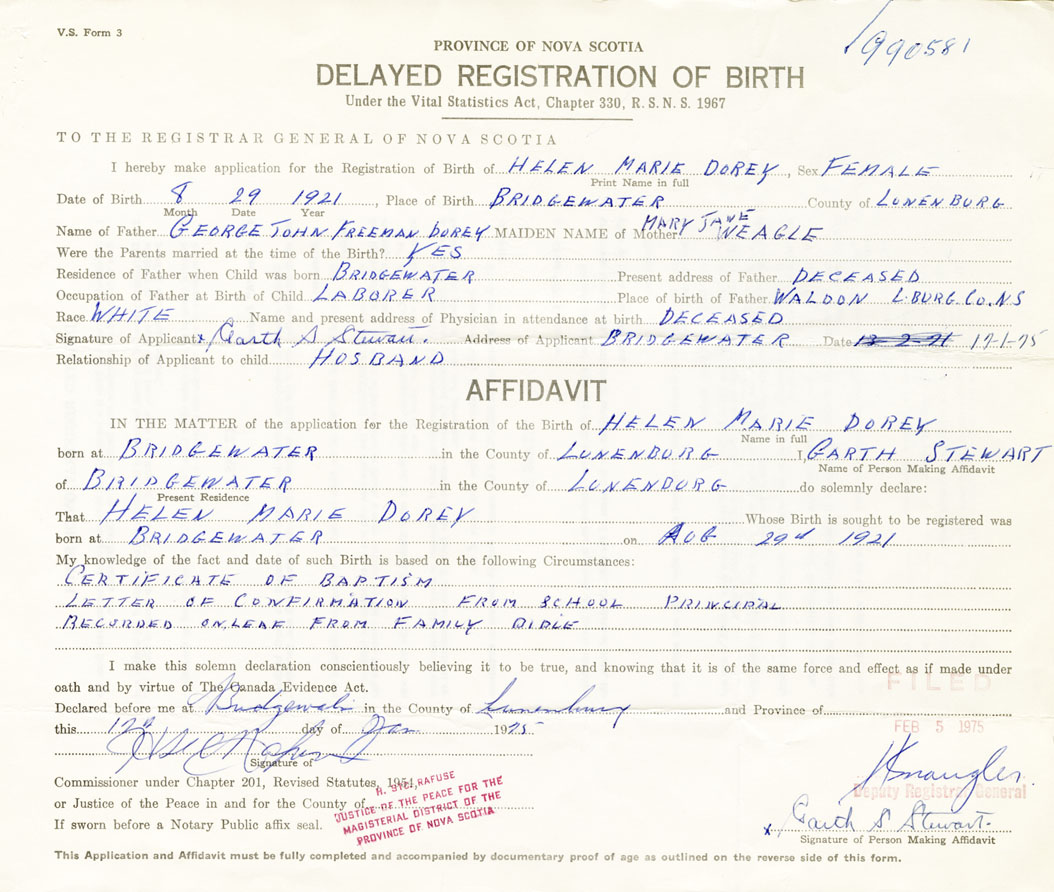 V.S. Form 3
990581
PROVINCE OF NOVA SCOTIA
DELAYED REGISTRATION OF BIRTH
Under the Vital Statistics Act, Chapter 330, R.S.N.S. 1967
TO THE REGISTRAR GENERAL OF NOVA SCOTIA
I hereby make application for the Registration of Birth of HELEN MARIE DOREY, Sex FEMALE
Print Name in full
Date of Birth 8 29 1921, Place of Birth BRIDGEWATER County of LUNENBURG
Month Date Year
Name of Father GEORGE JOHN FREEMAN DOREY MAIDEN NAME of Mother MARY JANE WEAGLE
Were the Parents married at the time of the Birth? YES
Residence of Father when Child was born BRIDGEWATER Present address of Father DECEASED
Occupation of Father at Birth of Child LABORER Place of birth of Father WALDON L.BURG.CO.NS
Race WHITE Name and present address of Physician in attendance at birth DECEASED
Signature of Applicant x Garth S Stewart. Address of Applicant BRIDGEWATER Date 17-1-75
Relationship of Applicant to child HOSBAND
AFFIDAVIT
IN THE MATTER of the application for the Registration of the Birth of HELEN MARIE DOREY
Name in full
born at BRIDGEWATER in the County of LUNENBURG I, GARTH STEWART
Name of Person Making Affidavit
of BRIDGEWATER in the County of LUNENBURG do solemnly declare:
Present Residence
That HELEN MARIE DOREY Whose Birth is sought to be registered was
born at BRIDGEWATER on AUG 29th 1921
My knowledge of the fact and date of such Birth is based on the following Circumstances:
CERTIFICATE OF BAPTISM
LETTER OF CONFIRMATION FROM SCHOOL PRINCIPAL
RECORDED ON LEAF FROM FAMILY BIBLE
I make this solemn declaration conscientiously believing it to be true, and knowing that it is of the same force and effect as if made under
oath and by virtue of The Canada Evidence Act.
FILED
Declared before me at Bridgewater in the County of Lunenburg and Province of
this 17th day of Jan 1975
FEB 5 1975
Signature of
Commissioner under Chapter 201, Revised Statutes, 1954,
or Justice of the Peace in and for the County of
If sworn before a Notary Public affix seal.
JUSTICE OF THE PEACE FOR THE
MAGISTERIAL DISTRICT OF THE
PROVINCE OF NOVA SCOTIA
Deputy Registrar General
x Garth S Stewart.
Signature of Person Making Affidavit
This Application and Affidavit must be fully completed and accompanied by documentary proof of age as outlined on the reverse side of this form.